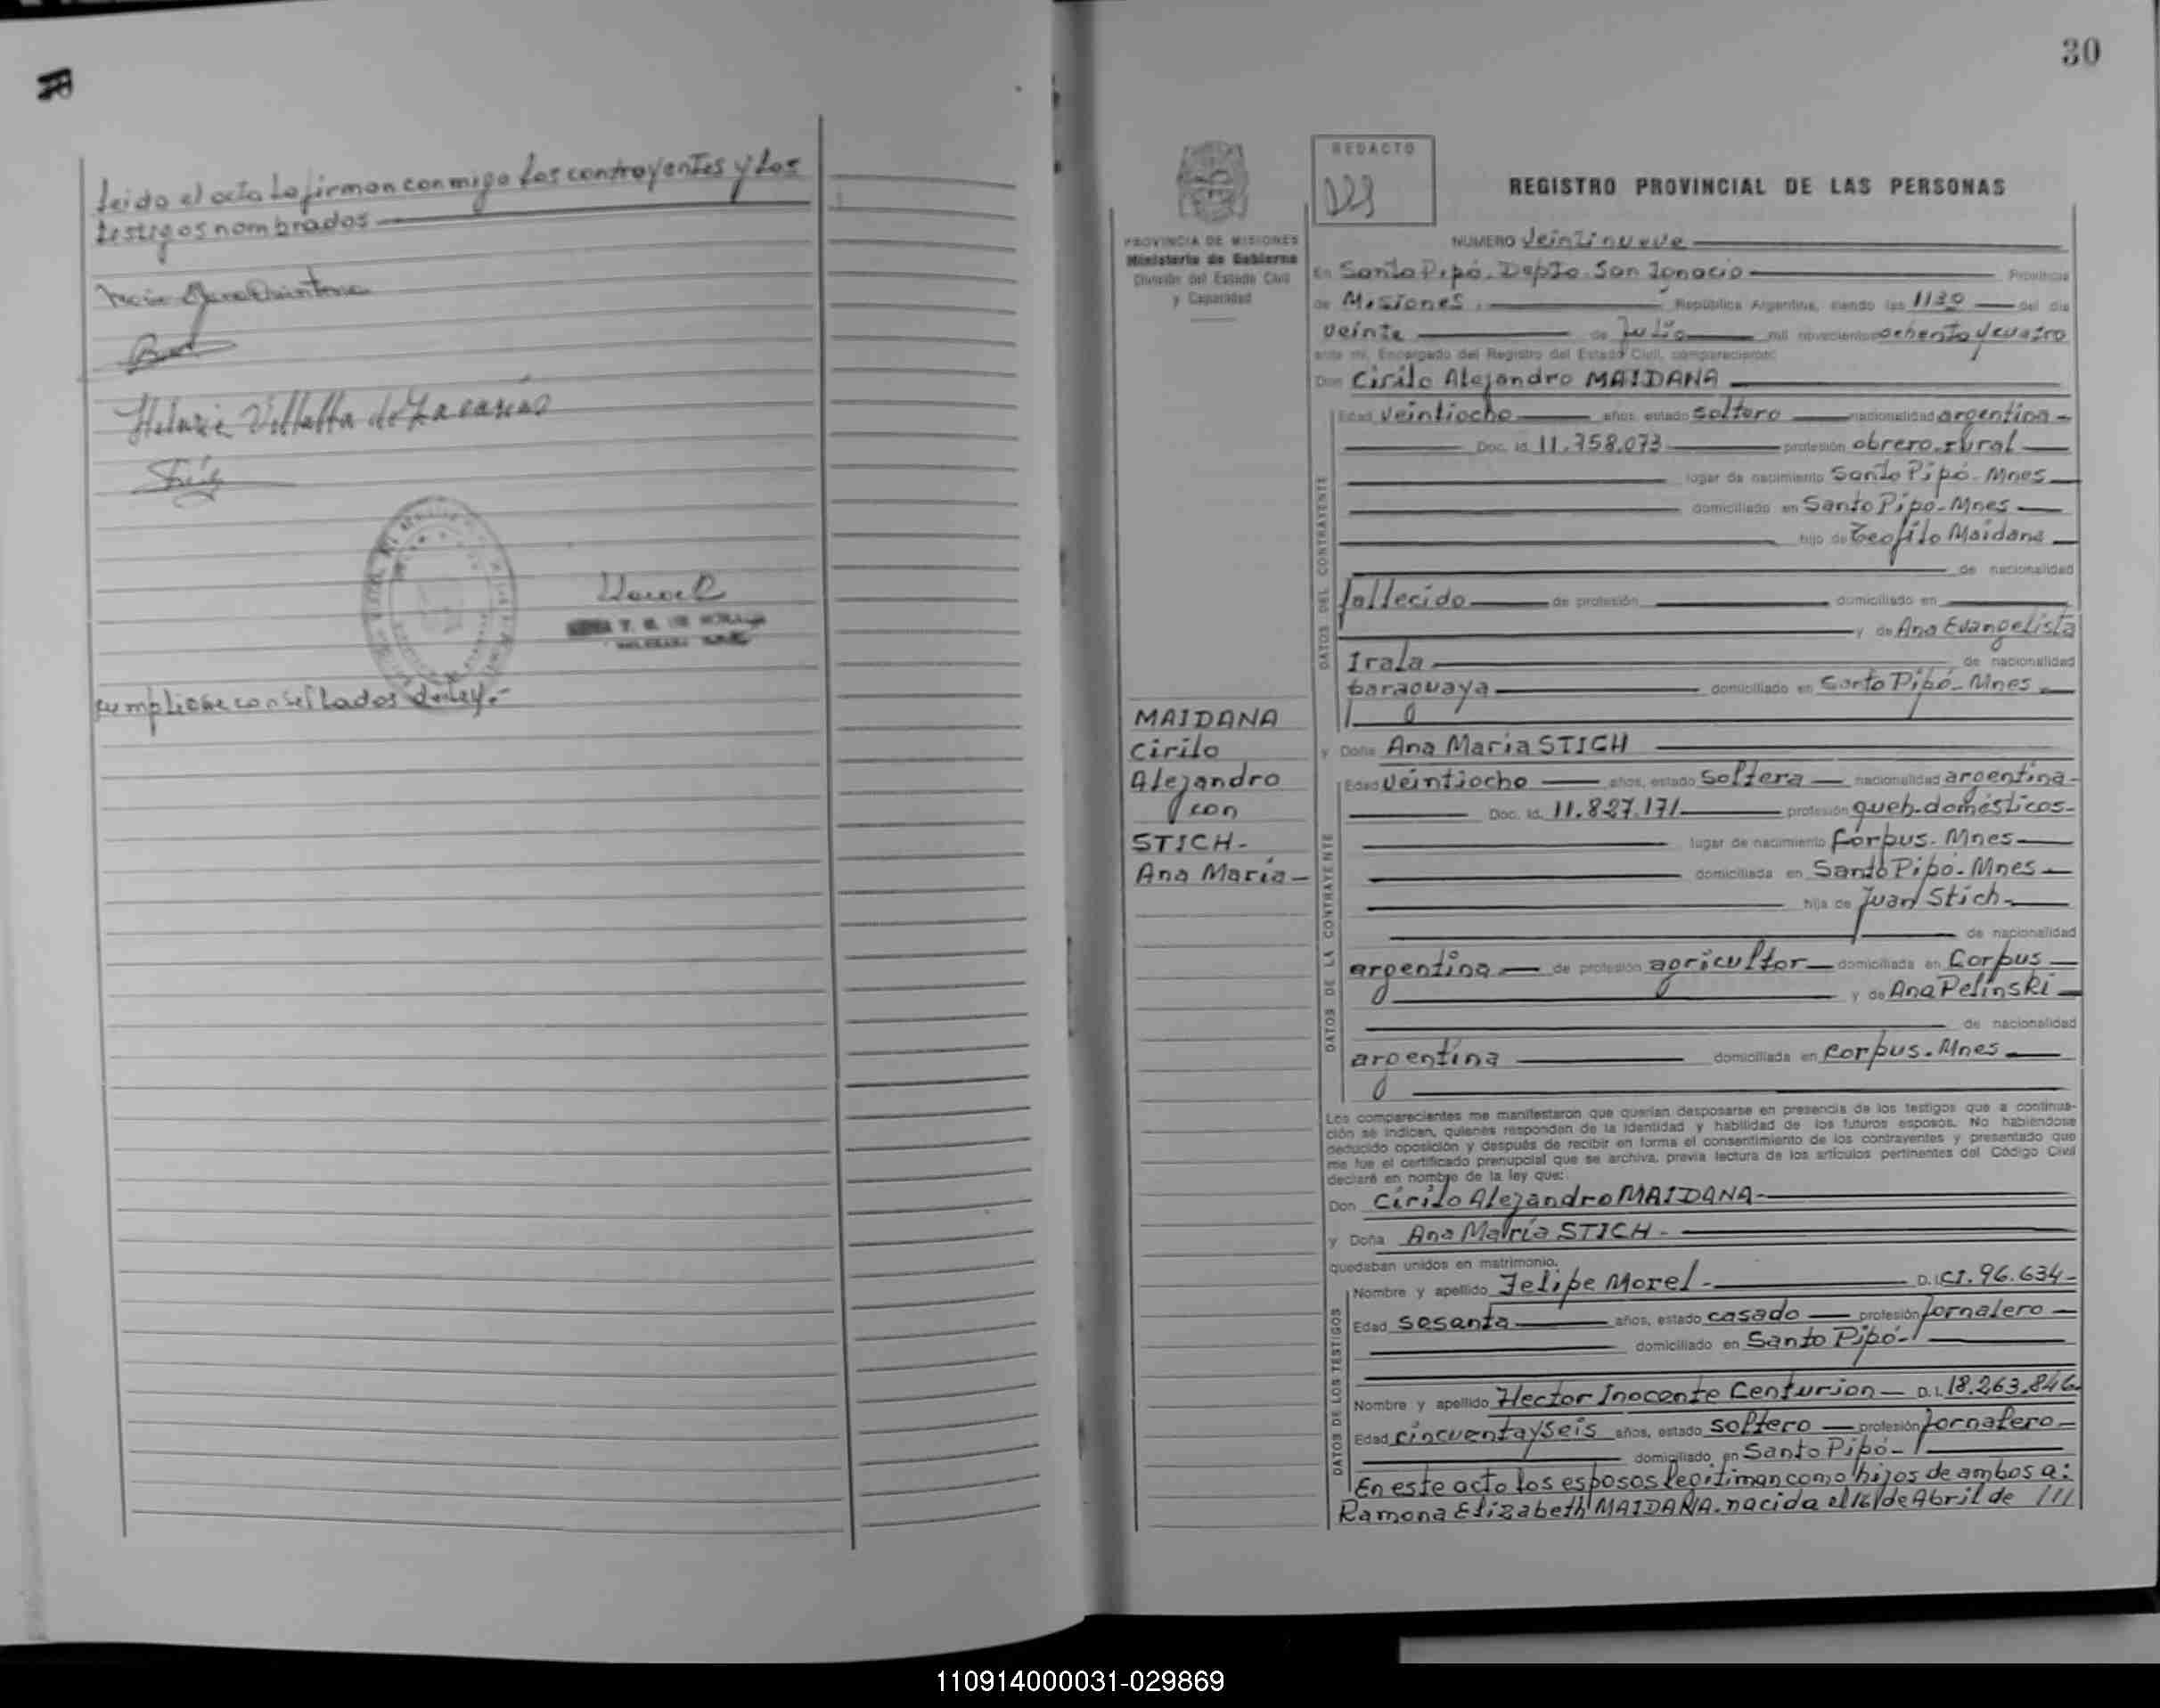 Leido el acta la firman conmigo los contrayentes y los
testigos nombrados
Hilaria Villalba de Zacarías
cumpliose con sellados de ley.-
30
REDACTO
REGISTRO PROVINCIAL DE LAS PERSONAS
PROVINCIA DE MISIONES
Ministerio de Gobierno
División del Estado Civil
y Capacidad
NUMERO Veintinueve
En Santo Pipó. Depto. San Ignacio Provincia
de Misiones. República Argentina, siendo las 1130 del día
veinte de Julio mil novecientos ochenta y cuatro
ante mí, Encargado del Registro del Estado Civil, comparecieron:
Don Cirilo Alejandro MAIDANA
Edad veintiocho años, estado soltero nacionalidad argentina-
Doc. Id. 11.758.073 profesión obrero rural
lugar de nacimiento Santo Pipó-Mnes
domiciliado en Santo Pipó-Mnes.
hijo de Teofilo Maidana
de nacionalidad
fallecido de profesión domiciliado en
y de Ana Evangelista
Irala de nacionalidad
paraguaya domiciliado en Santo Pipó-Mnes
DATOS DEL CONTRAYENTE
MAIDANA
Cirilo
Alejandro
con
STICH-
Ana María-
y Doña Ana María STICH
Edad veintiocho años, estado soltera nacionalidad argentina-
Doc. Id. 11.827.171 profesión queh-domésticos-
lugar de nacimiento Corpus. Mnes
domiciliada en Santo Pipó-Mnes
hija de Juan Stich-
de nacionalidad
argentina de profesión agricultor domiciliada en Corpus
y de Ana Pelinski
de nacionalidad
argentina domiciliada en Corpus. Mnes
DATOS DE LA CONTRAYENTE
Los comparecientes me manifestaron que querían desposarse en presencia de los testigos que a continua-
ción se indican, quienes responden de la identidad y habilidad de los futuros esposos. No habiéndose
deducido oposición y después de recibir en forma el consentimiento de los contrayentes y presentado que
me fue el certificado prenupcial que se archiva, previa lectura de los artículos pertinentes del Código Civil
declaré en nombre de la ley que:
Don Cirilo Alejandro MAIDANA-
y Doña Ana María STICH-
quedaban unidos en matrimonio.
Nombre y apellido Felipe Morel- D.I. CI. 96.634-
Edad sesenta años, estado casado profesión jornalero
domiciliado en Santo Pipó-
Nombre y apellido Hector Inocente Centurion D.I. 18.263.846
Edad cincuenta y seis años, estado soltero profesión jornalero
domiciliado en Santo Pipó-
DATOS DE LOS TESTIGOS
En este acto los esposos legitiman como hijos de ambos a:
Ramona Elizabeth MAIDANA. nacida el 16 de Abril de ///
110914000031-029869